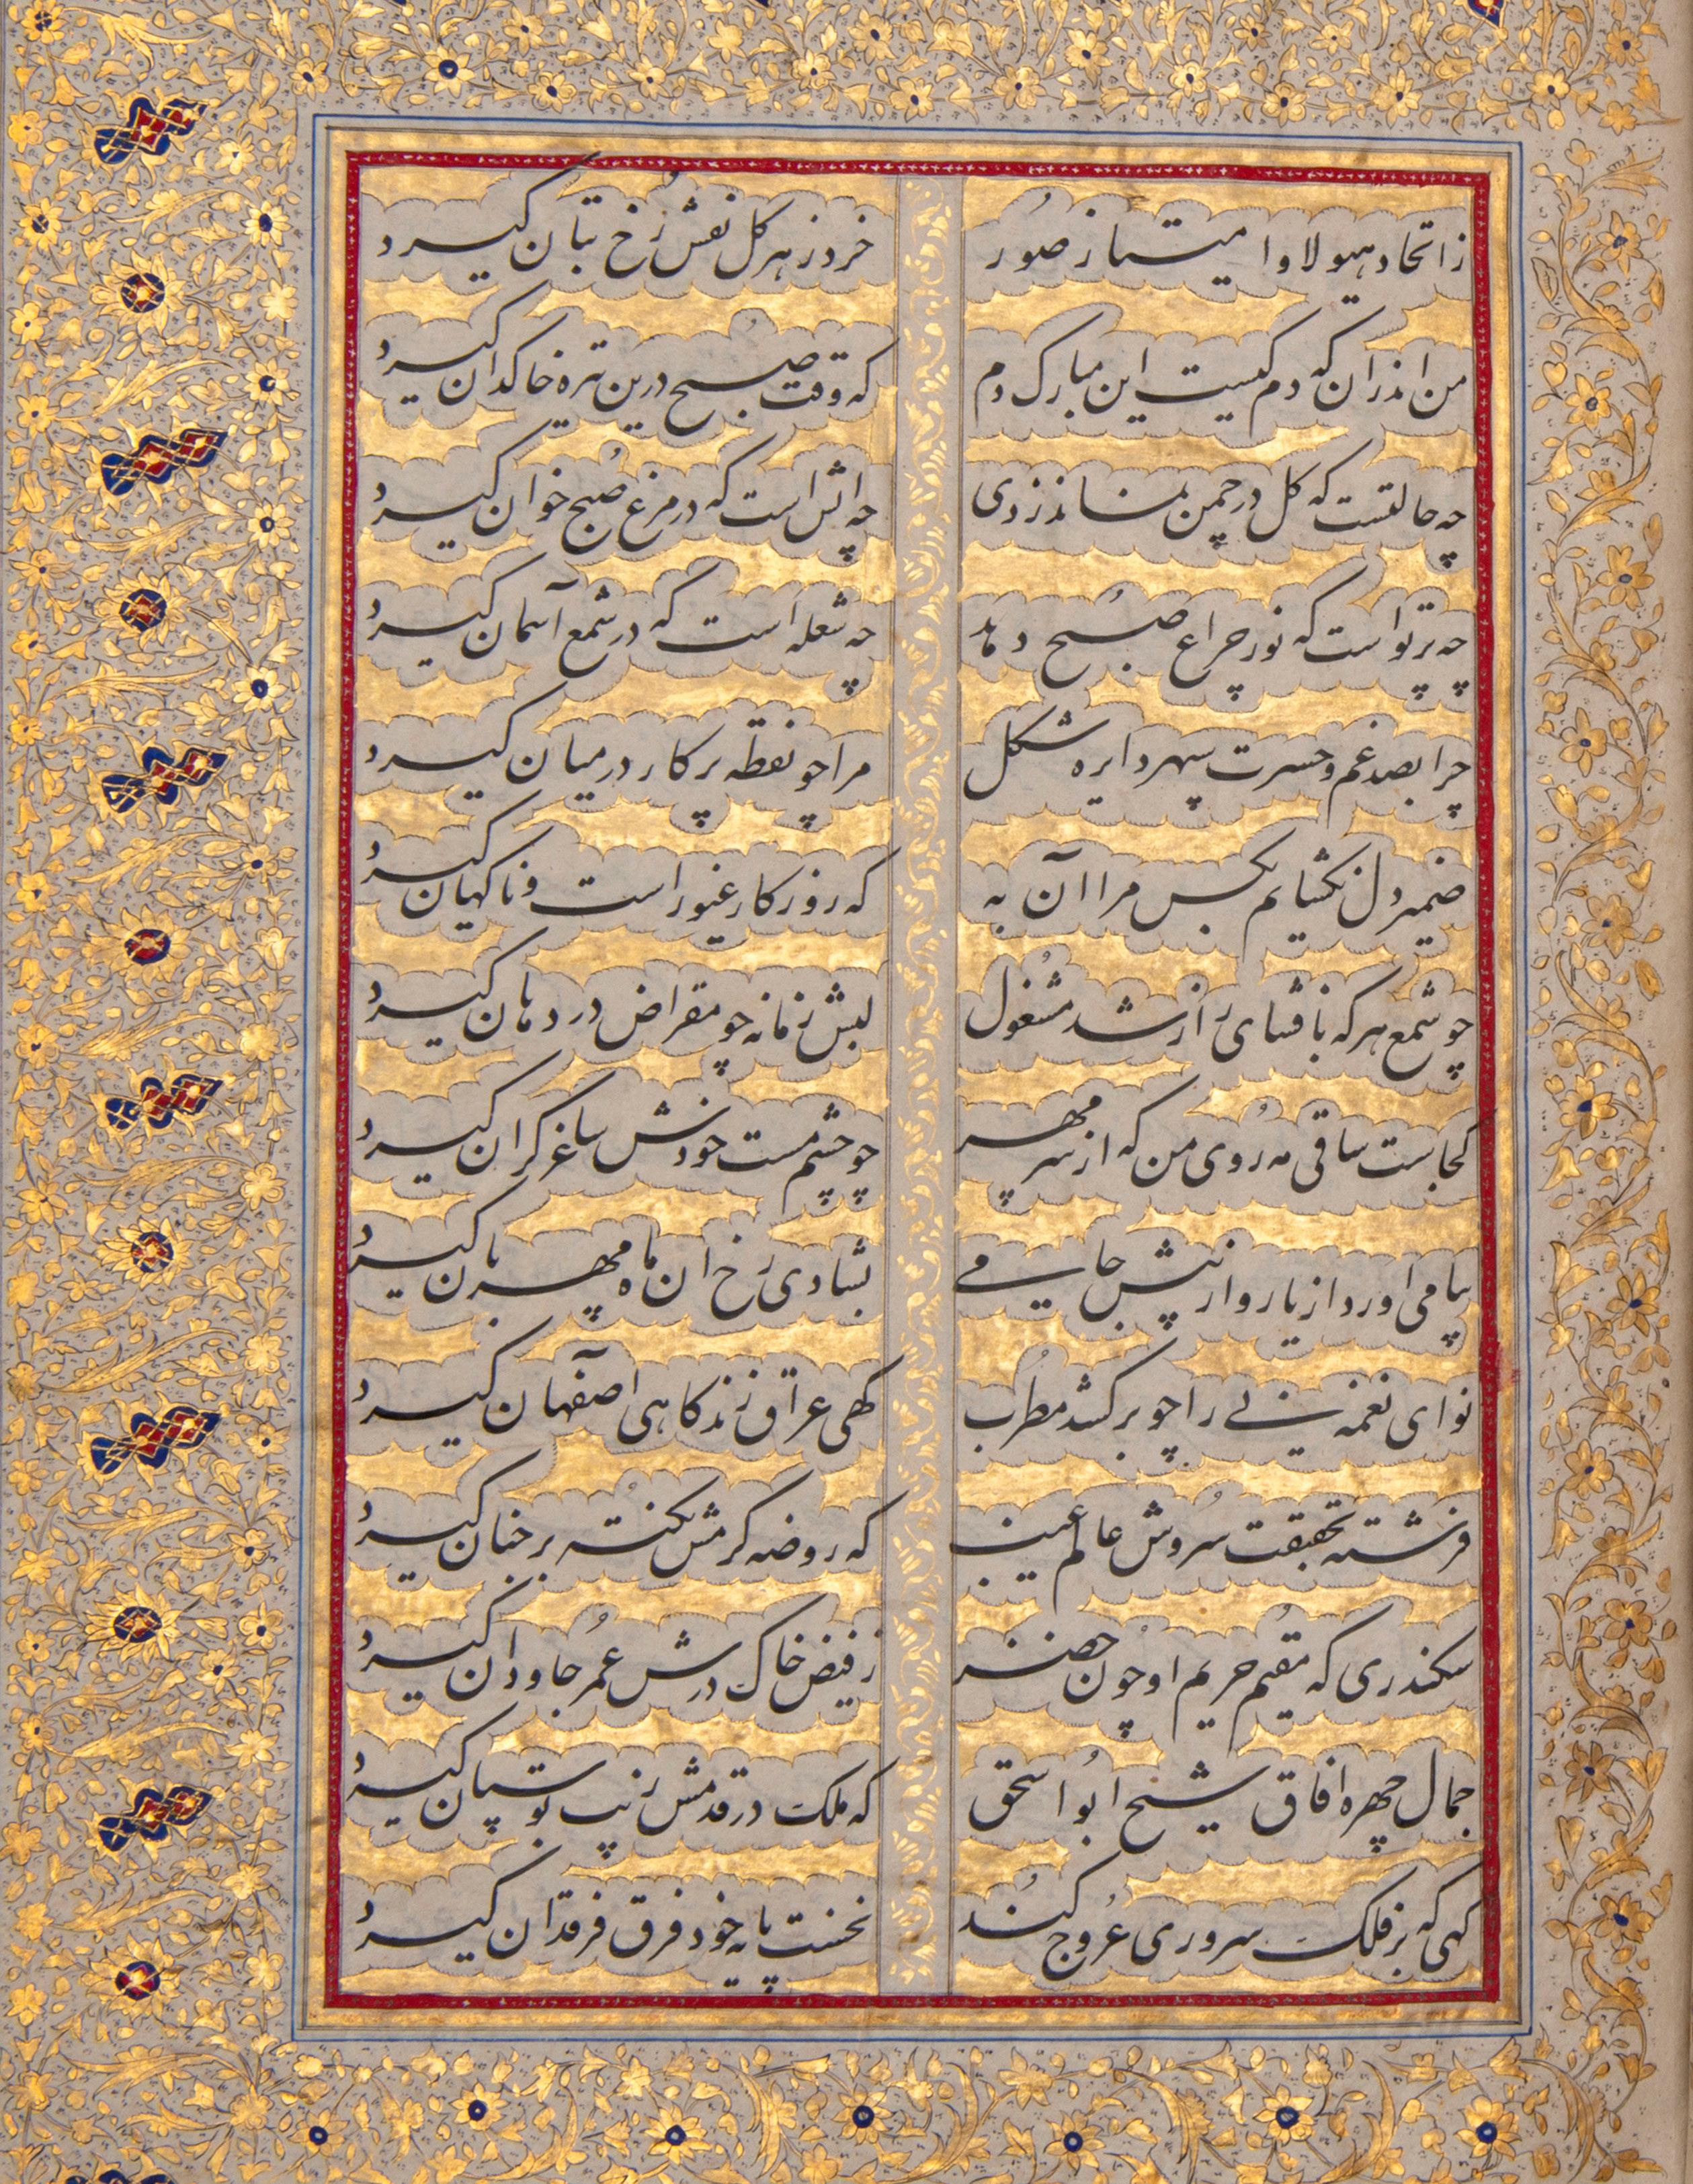 ز اتحاد هیولا و امتیاز صور خرد ز هر کل نقش رخ بتان کیرد
من اندران که دم کیست این مبارک دم که وقت صبح درین تیره خاکدان کیرد
چه حالتست که کل در چمن نماند زدی چه اتش است که در مرغ صبح خوان کیرد
چه پرتو است که نور چراغ صبح دهد چه شعله است که در شمع آسمان کیرد
چرا بصد غم و حسرت سپهر دایره شکل مرا چو نقطه پرکار در میان کیرد
ضمیر دل نکشایم بکس مرا آن به که روزکار غیور است و ناکهان کیرد
چو شمع هر که بافشای راز شد مشغول لبش زمانه چو مقراض در دهان کیرد
کجاست ساقی مه روی من که از سر مهر چو چشم مست خودش ساغر کران کیرد
پیامی اورد از یار و از پیش جامی بشادی رخ ان ماه مهربان کیرد
نوای نغمه نی را چو بر کشد مطرب کهی عراق زند کاهی اصفهان کیرد
فرشته بحقیقت سروش عالم غیب که روضه کرمش نکته بر جنان کیرد
سکندری که مقیم حریم او چون خضر ز فیض خاک درش عمر جاودان کیرد
جمال چهره افاق شیخ ابو اسحق که ملک در قدمش زیب بوستان کیرد
کهی که بر فلک سروری عروج کند نخست پایه خود فرق فرقدان کیرد